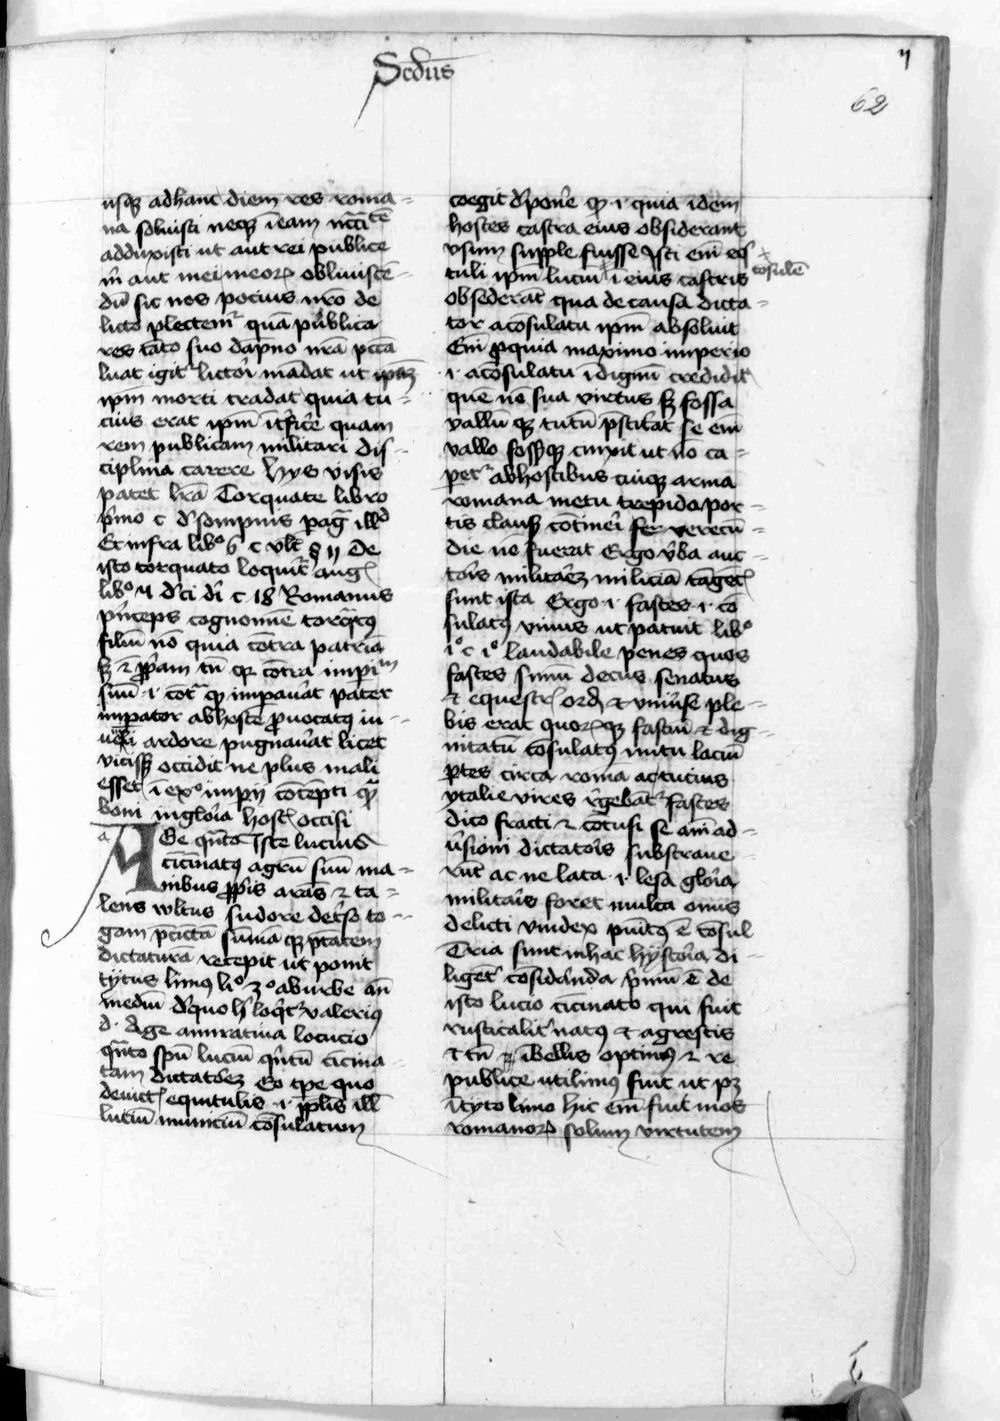 Scd̄us
62
usqȝ adhanc diem res roma-
na soluisti neqȝ īeam nccītē
adduxisti ut aut rei publice
m̄ aut mei meoꝝ obliuiscē-
dū sic nos pocius nr̄o de
licto plectemr̄ quā publica
res tāto suo dāpno nr̄ā pctā
luat igitr̄ lictori mādat ut
ip̄m morti tradat quia tu-
cius erat ip̄m īt̄fic̄e quam
rem publicam militari dis-
ciplina carere hys visis
patet lr̄ā Torquate libro
p̄mo c d̓ sompnis pag̓ ill̄
Et infra lib̊ 6 c vlt̄ § ij De
isto torquato loquit̓ aug̓
lib̊ 4 d̓ ci dī c 18 Romanus
p̓nceps cognomīe torq̄tꝯ
filiū nō quia cōtra patriā
sȝ ⁊ ꝓ p̄am tn̄ qr cōtra imꝑiū
suū .i. cōt̄ qȝ imꝑauat pater
imꝑator abhoste ꝓuocatꝯ iu-
ueīli ardore pugnau̓at licet
vicissȝ occidit ne plus mali
esset ī ex̊ imꝑij cōtēpti q̄
boni īngloria host̓ occisi
a
AGe qn̄to Iste lucius
cicinatꝯ agrū suū ma-
nibus ꝓprijs arās ⁊ ta-
lens wltus sudore det̓so to-
gam p̄cictā sūmā qȝ ptātem
dictaturā recepit ut ponit
tytus liuiꝯ li̊ 3̊ aburbe an̄
mediū d̓quo hͥ loq̓tr̄ valeriꝯ
d. Age amiratiua locucio
qn̄to spū luciū q̓ntū cicina-
tam dictatorē Eo tp̄e quo
deuict̓ equitulis .i. pp̄lis ill̄
luciū municiū cōsulatum
coegit d̓pon̓e qȝ .i. quia idem
hostes castra eius obsiderant
vsum supple fuisse Isti em̄ eq̓
tuli ip̄m luciū ī eius castris
cōsulē
obsederāt qua de causa dicta-
tor acōsulatu ip̄m absoluit
Em̄ ꝓquia maximo imperio
.i. acōsulatu īdignū credidit
quē nō sua virtus sȝ fossa
vallū qȝ tutū p̄stit̓at se em̄
vallo fossaqȝ cinxit ut nō ca-
petr̄ abhostibus cuiqȝ arma
romana metu trepido por-
tis clausȝ cōtineri verecū-
die nō fuerit Ergo v̓ba auc-
toris militarē miliciā tāget̓
sunt ista Ergo .i. fastes .i. cō
sulatꝯ vnius ut patuit lib̊
i̊ c i̊ laudabile penes quos
fastes sūmū decus senatus
⁊ equestr̓ ord̓ ⁊ vniu̓se ple-
bis erat quorꝫ qȝ fastiū ⁊ dig-
nitatū cōsulatꝯ nutu laciū
ꝑtes circa romā ac tucius
ytalie vires r̓gebāt̓ fastes
dico fracti ⁊ cōtusi se aīad-
u̓sioni dictatoris substraue-
rūt ac ne lata .i. lesa gloria
militaris foret multa onus
delicti vindex puitꝯ ē cōsul
Tria sunt inhac hystoria di-
ligēt̓ cōsidāda p̄mū ē de
isto lucio cicinato qui fuit
rusticalit̓ natꝯ ⁊ agrestis
⁊ tn̄ ībellis optimꝯ ⁊ re
publice utilimꝯ fuit ut pȝ
ī tyto liuio hic em̄ fuit mos
romanoꝝ solum virtutem